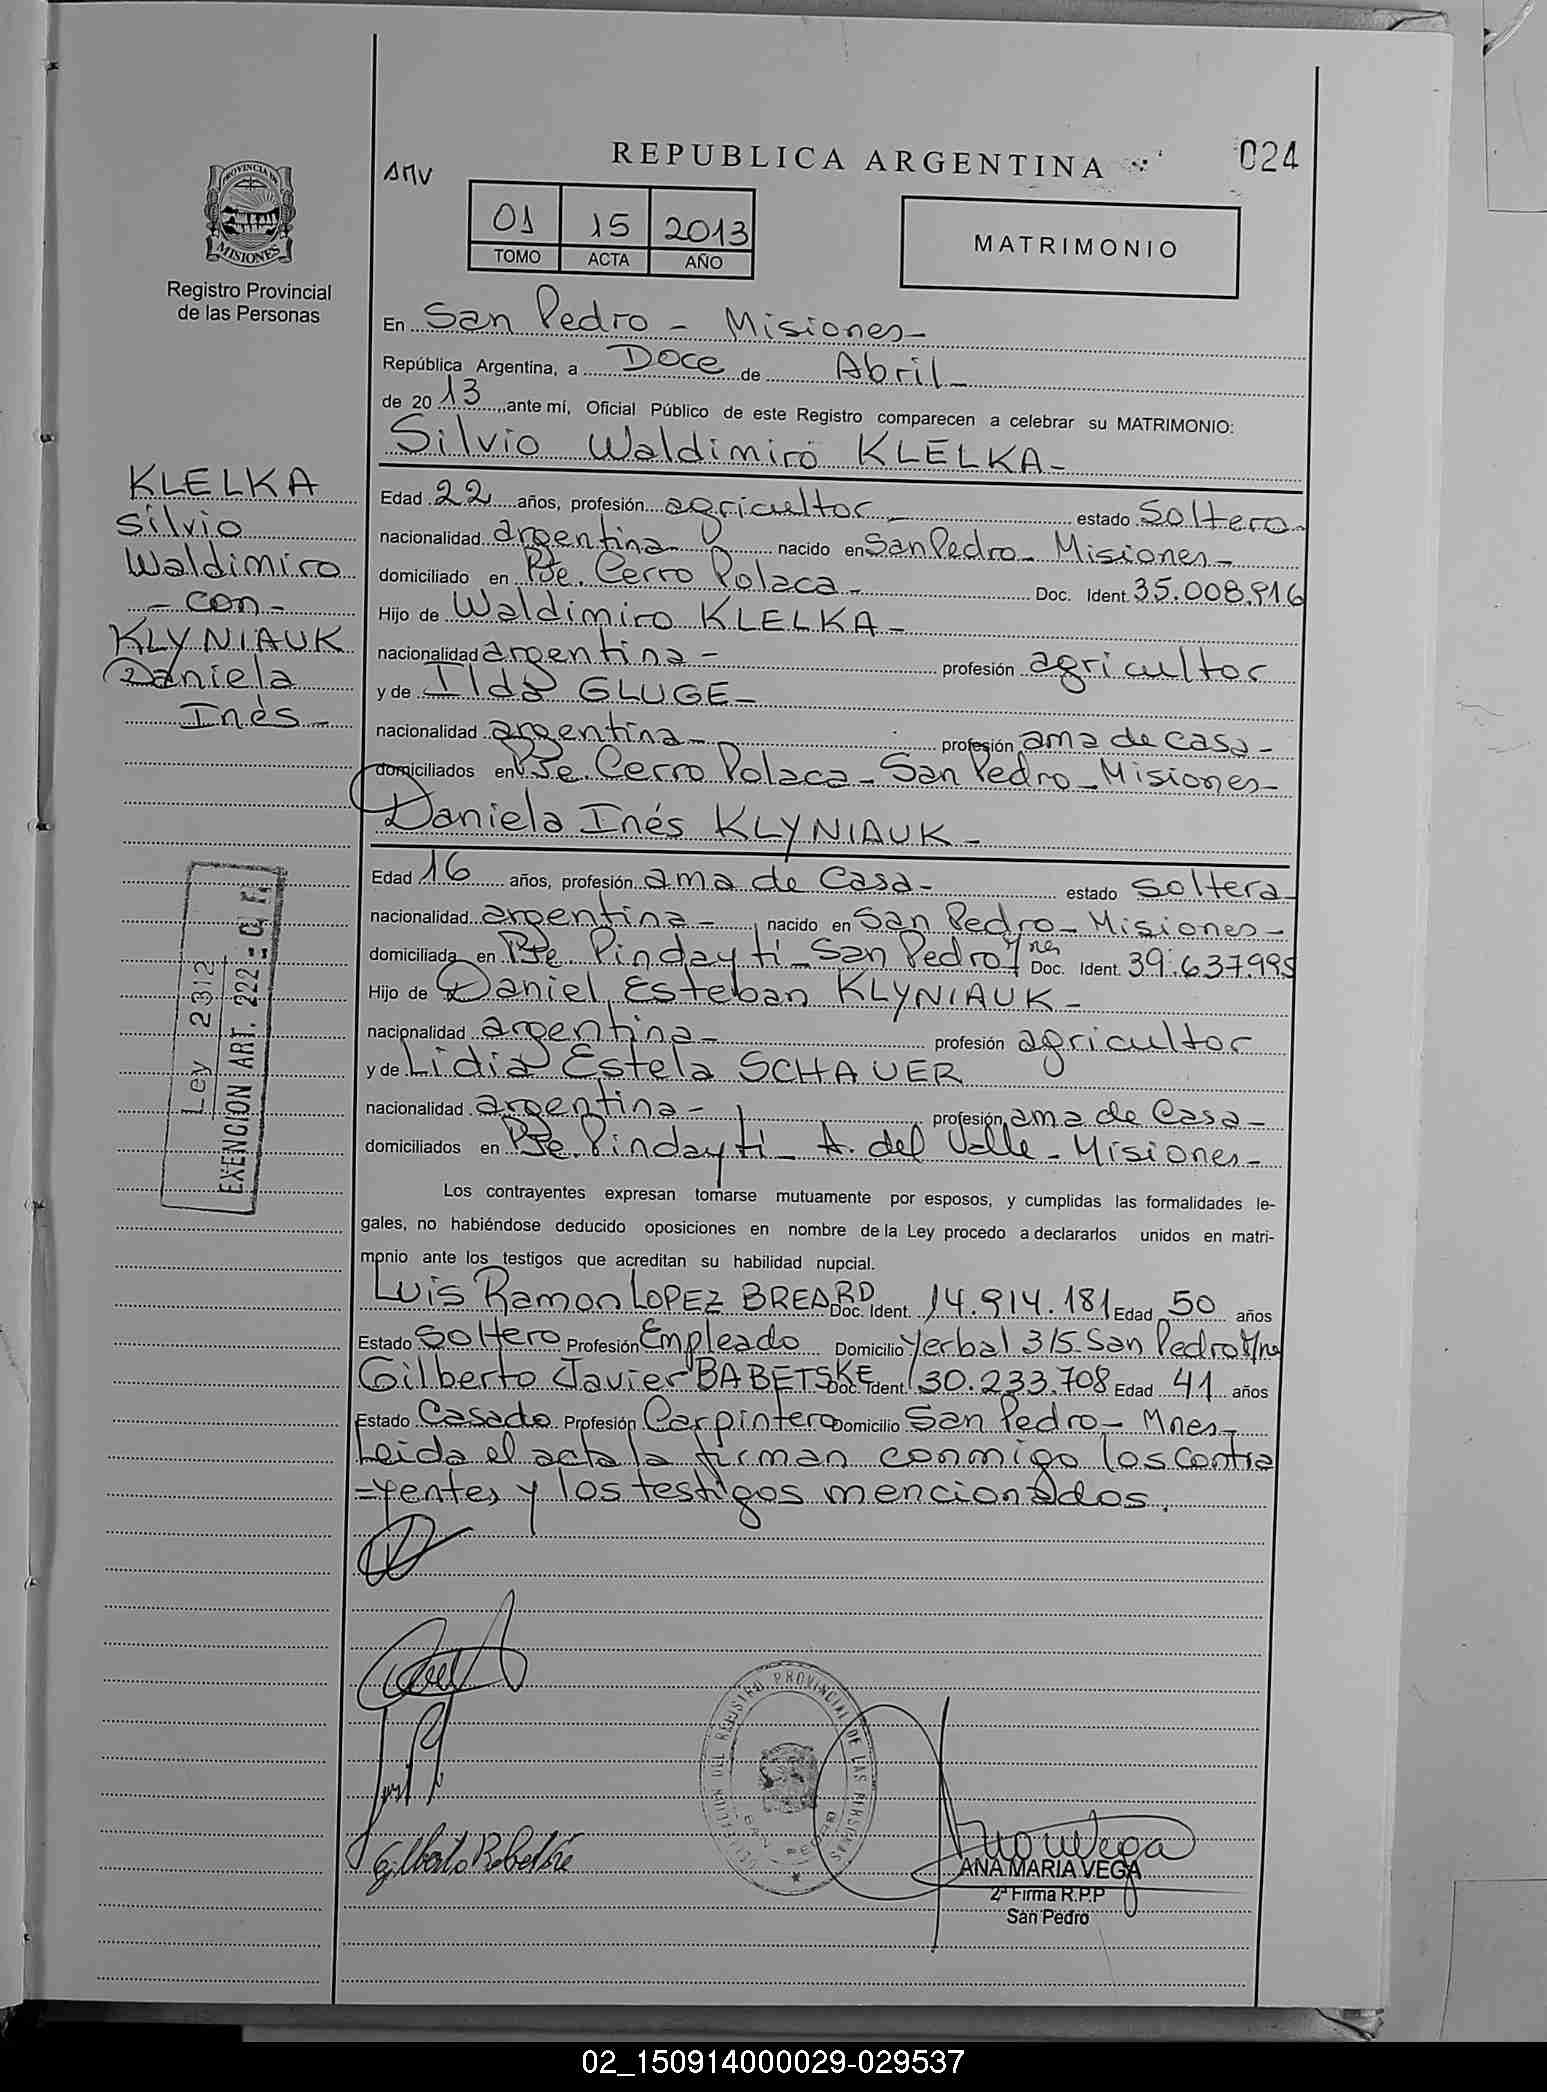 REPUBLICA ARGENTINA
024
AMV
PROVINCIA DE
MISIONES
Registro Provincial
de las Personas
01 15 2013
TOMO ACTA AÑO
MATRIMONIO
En San Pedro - Misiones -
República Argentina, a Doce de Abril -
de 2013, ante mí, Oficial Público de este Registro comparecen a celebrar su MATRIMONIO:
Silvio Waldimiro KLELKA -
KLELKA
Silvio
Waldimiro
- con -
KLYNIAUK
Daniela
Inés -
Edad 22 años, profesión agricultor - estado Soltero -
nacionalidad argentina - nacido en San Pedro - Misiones -
domiciliado en Pje. Cerro Polaca - Doc. Ident. 35.008.916
Hijo de Waldimiro KLELKA -
nacionalidad argentina - profesión agricultor
y de Ilda GLUGE -
nacionalidad argentina - profesión ama de casa -
domiciliados en Pje. Cerro Polaca - San Pedro - Misiones -
Daniela Inés KLYNIAUK -
Edad 16 años, profesión ama de Casa - estado Soltera -
nacionalidad argentina - nacido en San Pedro - Misiones -
domiciliada en Pje. Pindayti - San Pedro Mnes Doc. Ident. 39.637.995
Hijo de Daniel Esteban KLYNIAUK -
nacionalidad argentina - profesión agricultor
y de Lidia Estela SCHAUER
nacionalidad argentina - profesión ama de Casa -
domiciliados en Pje. Pindayti - A. del Valle - Misiones -
Ley 2312
EXENCION ART. 222 =
Los contrayentes expresan tomarse mutuamente por esposos, y cumplidas las formalidades le-
gales, no habiéndose deducido oposiciones en nombre de la Ley procedo a declararlos unidos en matri-
monio ante los testigos que acreditan su habilidad nupcial.
Luis Ramon LOPEZ BREARD Doc. Ident. 14.914.181 Edad 50 años
Estado Soltero Profesión Empleado Domicilio Yerbal 315 San Pedro Mnes
Gilberto Javier BABETSKE Doc. Ident. 30.233.708 Edad 41 años
Estado Casado Profesión Carpintero Domicilio San Pedro - Mnes -
Leida el acta la firman conmigo los contra
=yentes y los testigos mencionados.
DEL REGISTRO PROVINCIAL DE LAS PERSONAS
SAN PEDRO
ANA MARIA VEGA
2ª Firma R.P.P
San Pedro
02_150914000029-029537